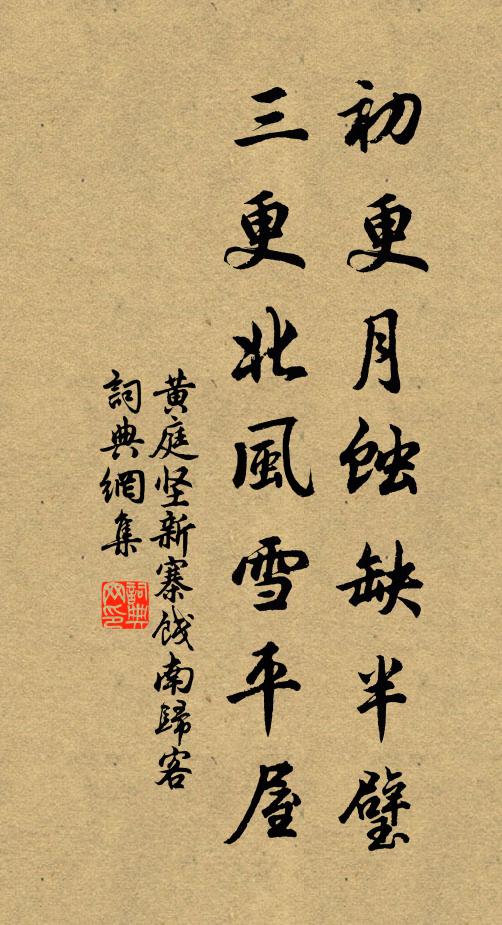 初更月蝕缺半璧
三更北風雪平屋
黄庭坚新寨饯南歸客
詞典網集
詞典網印